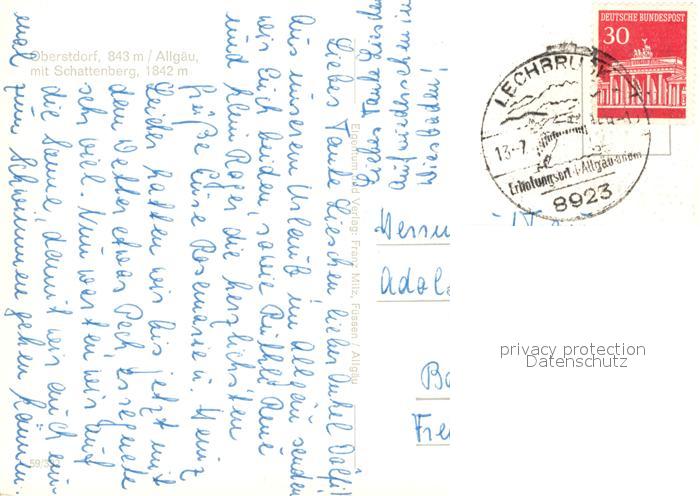 Oberstdorf, 843 m / Allgäu,
mit Schattenberg, 1842 m
Liebes Tante Lieschen lieber Onkel Dolfi!
Aus unserem Urlaub im Allgäu senden
wir Euch beiden, sowie René
und klein Roger die herzlichsten
Grüße Eure Rosemarie u. Heinz
Leider hatten wir bis jetzt mit
dem Wetter etwas Pech, es regnete
sehr viel. Nun warten wir auf
die Sonne, damit wir auch ein-
mal zum Schwimmen gehen können.
Liebes Tante Lieschen
Auf wiedersehen in
Wiesbaden!
Eigentum und Verlag: Franz Milz, Füssen / Allgäu
59/
DEUTSCHE BUNDESPOST
30
LECHBRUCK
13.-7.
Erholungsort i. Allgäu
8923
Adol
Fre
privacy protection
Datenschutz